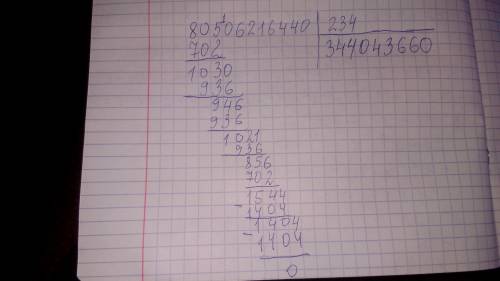 80506216440 | 234
702 344043660
1030
936
946
936
1021
936
856
702
1544
- 1404
1404
- 1404
0